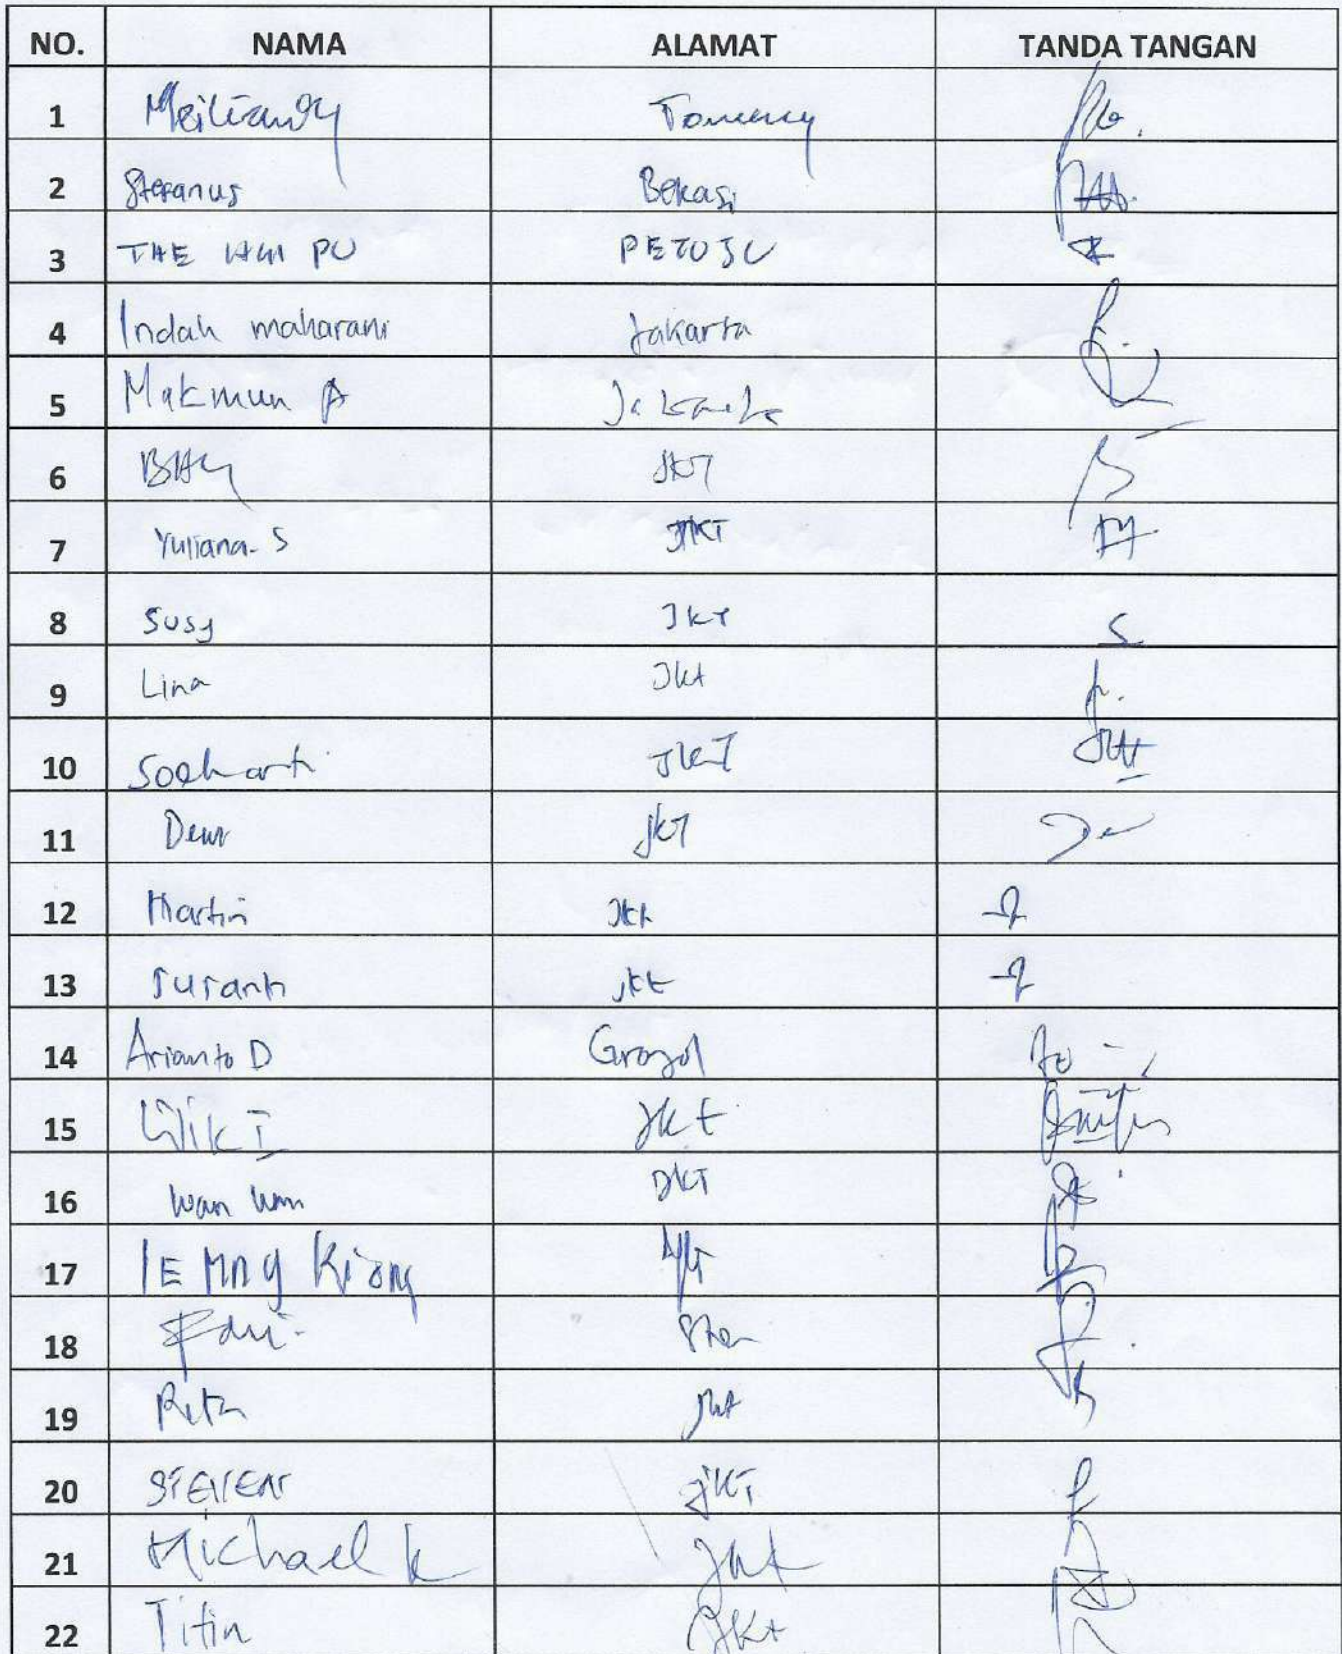 NO. NAMA ALAMAT TANDA TANGAN
1 Meiliandy
2 Stefanus Bekasi
3 THE PU PETOJU
4 Indah maharani Jakarta
5 Makmun A Jakarta
6 JKT
7 Yuliana. S JKT
8 Susy JKT
9 Lina Jkt
10 Soeharti JKT
11 Dewi JKT
12 Martin Jkt
13 Susanti Jkt
14 Arianto D Grogol
15 Lilik I Jkt
16 Wan Wan JKT
17 IE Kiong
18
19 Rita Jkt
20 STEVEN JKT
21 Michael k Jkt
22 Titin Jkt